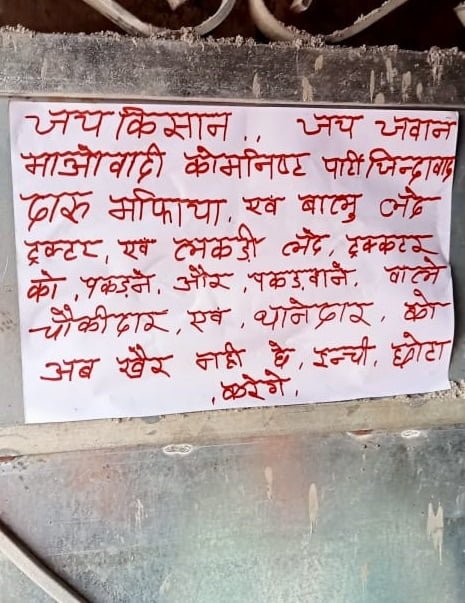 जय किसान .. जय जवान
माओवादी कोमनिष्ट पार्टी जिन्दावाद
दारू माफिाया, एवं बालु लोद
ट्रक्टर, एवं लकड़ी लोद, ट्रक्कटर
को, पकड़ने, और, पकड़वाने, वाले
चौकीदार, एवं, थानेदार, को
अब खैर नही है, इन्ची, छोटा
, करेगे,